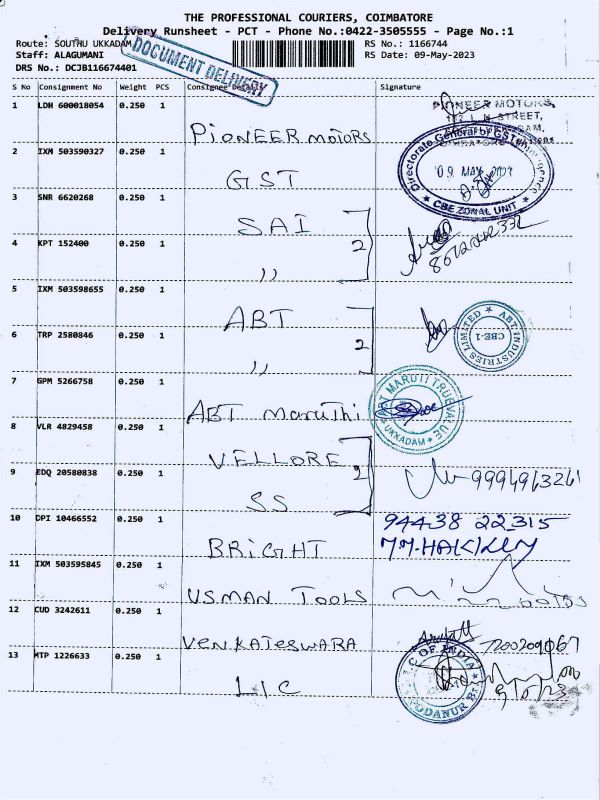 THE PROFESSIONAL COURIERS, COIMBATORE
Delivery Runsheet - PCT - Phone No.:0422-3505555 - Page No.:1
Route: SOUTHU UKKADAM
RS No.: 1166744
Staff: ALAGUMANI
RS Date: 09-May-2023
DRS No.: DCJB116674401
DOCUMENT DELIVERY
S No Consignment No Weight PCS Consignee Details Signature
1 LDH 600018054 0.250 1 PIONEER MOTORS
PIONEER MOTORS,
STREET,
2 IXM 503590327 0.250 1 GST
Directorate General of GST Intelligence
09 MAY
CBE ZONAL UNIT
3 SNR 6620268 0.250 1 SAI
2
4 KPT 152400 0.250 1 ,,
5 IXM 503598655 0.250 1 ABT
2
ABT INDUSTRIES LIMITED
CBE-1
6 TRP 2580846 0.250 1 ,,
7 GPM 5266758 0.250 1 ABT Maruthi
ABT MARUTI TRUE VALUE
UKKADAM
8 VLR 4829458 0.250 1 VELLORE
2
9 EDQ 20580838 0.250 1 SS
10 DPI 10466552 0.250 1 BRIGHT
94438 22315
11 IXM 503595845 0.250 1 USMAN TOOLS
12 CUD 3242611 0.250 1 VENKATESWARA
13 MTP 1226633 0.250 1 LIC
OF INDIA
PODANUR